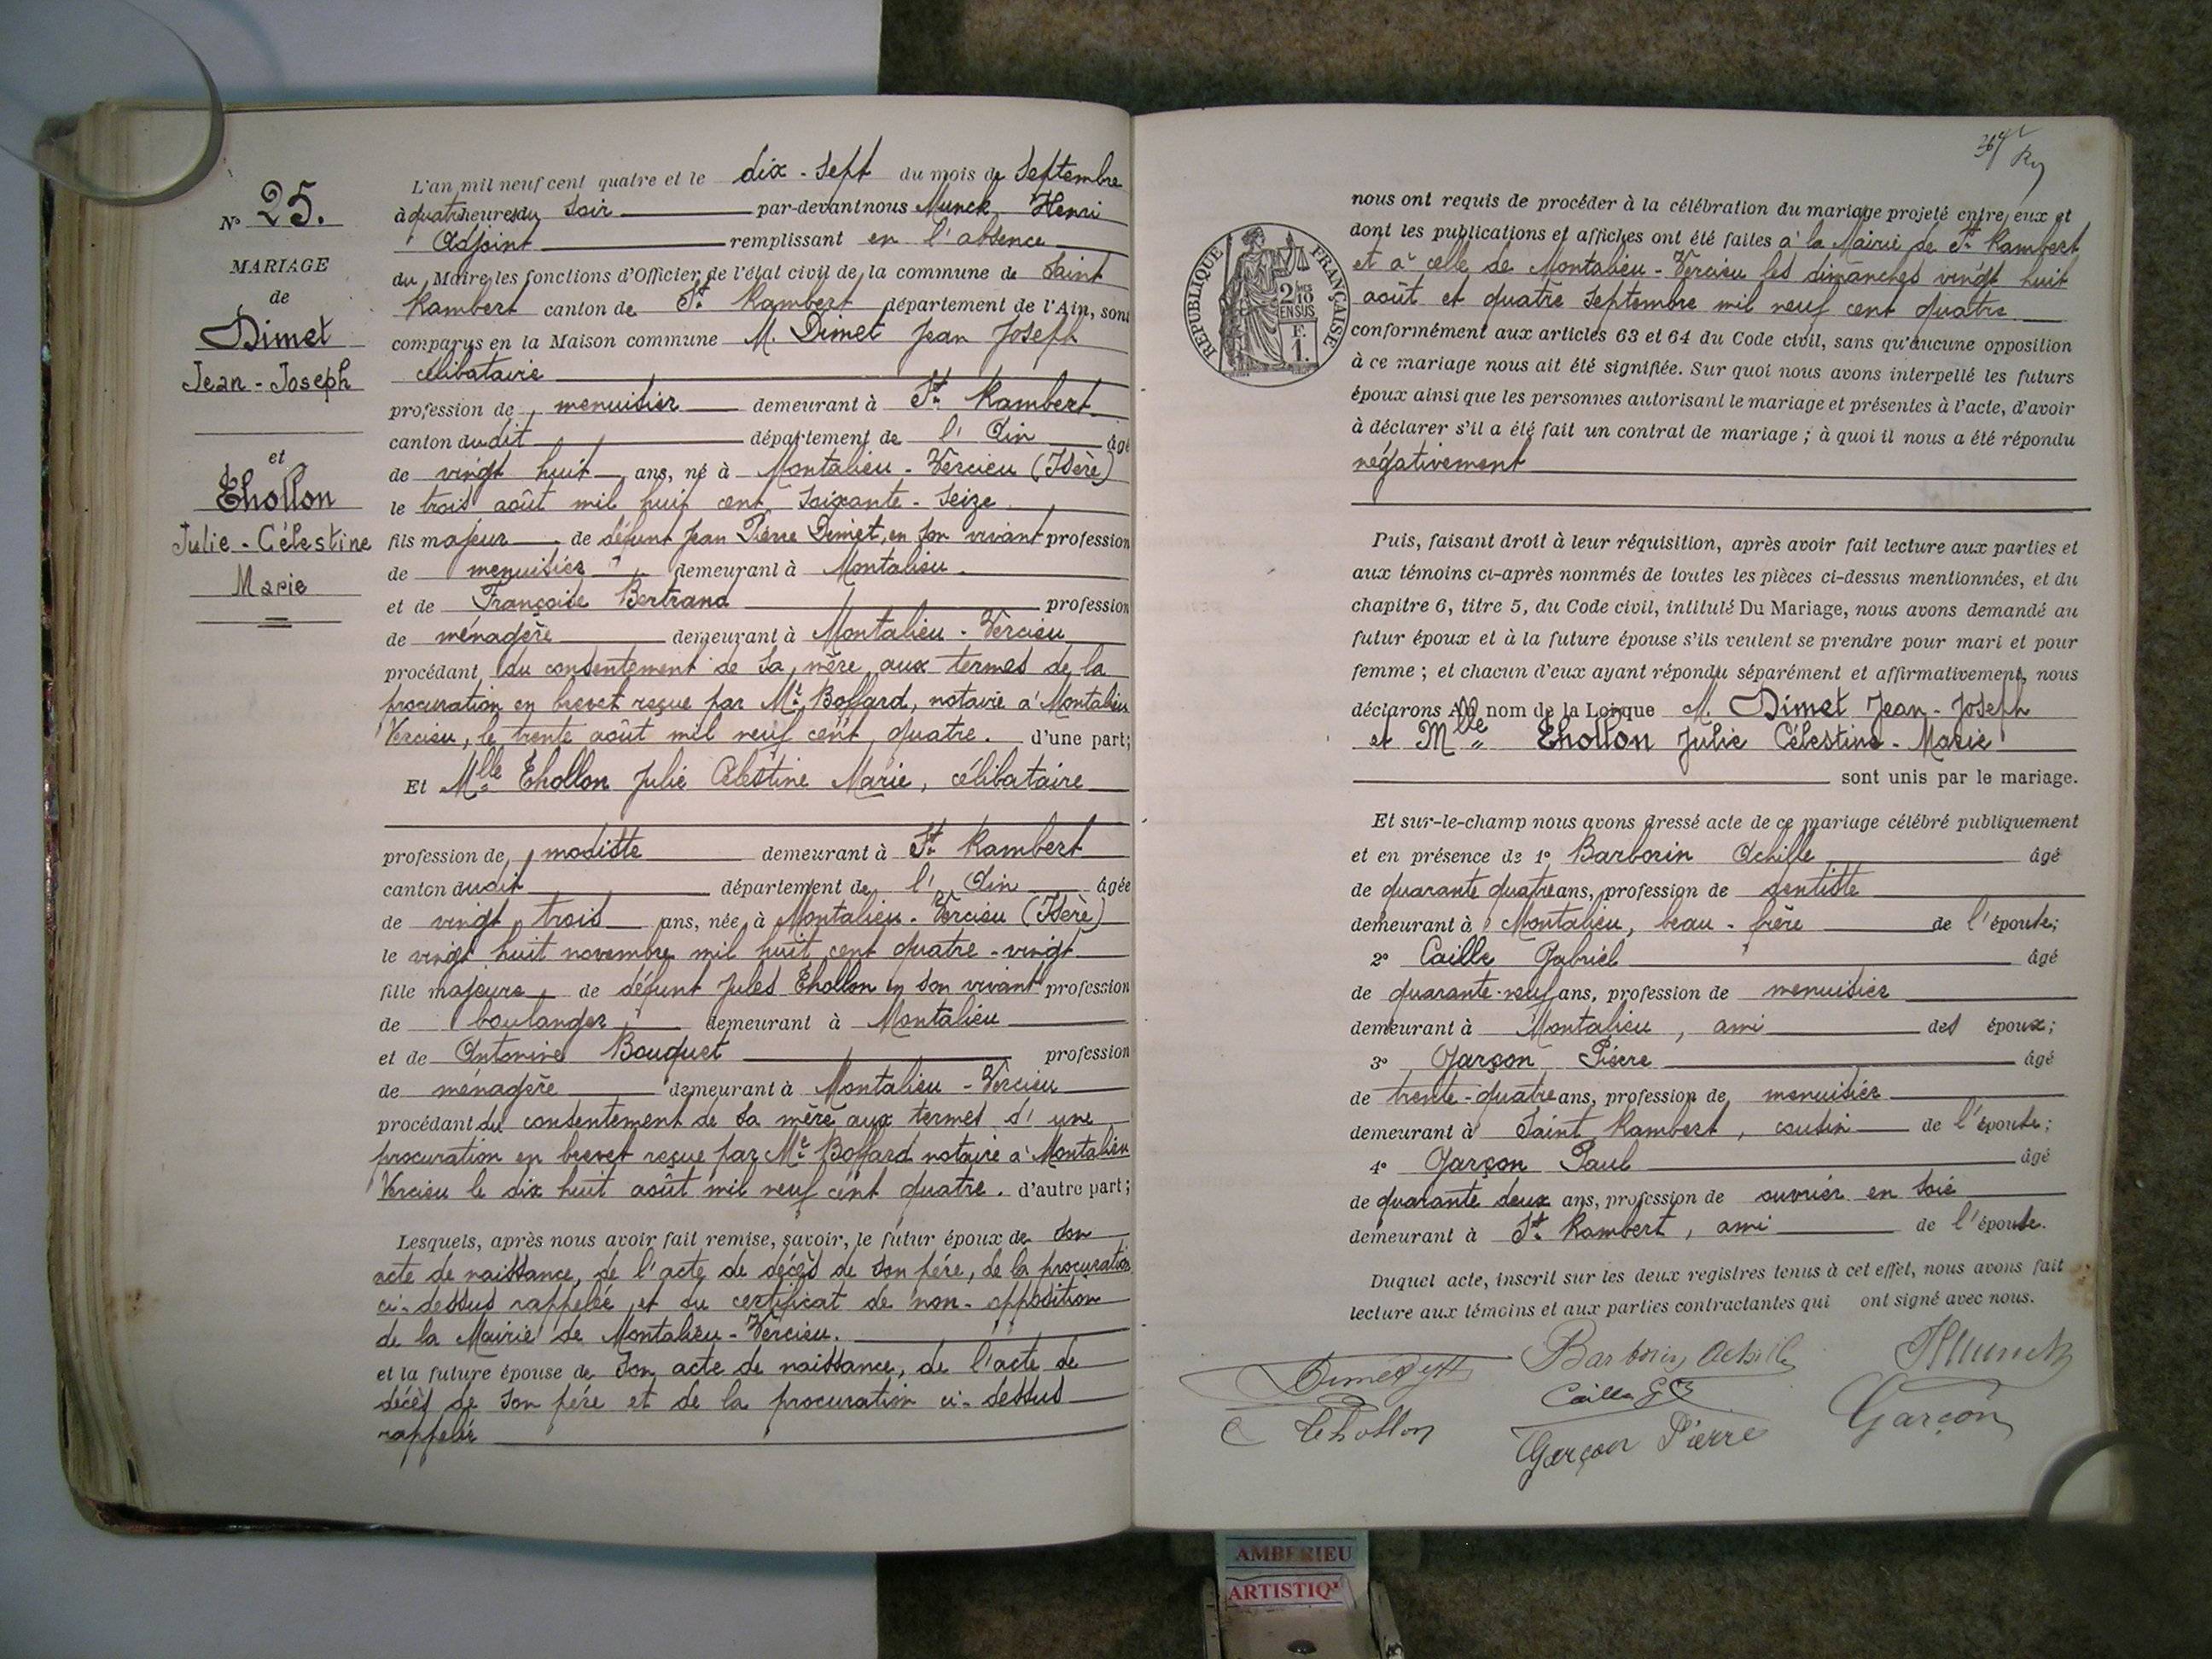 N° 25.
MARIAGE
de
Dimet
Jean-Joseph
et
Thollon
Julie-Célestine
Marie
L'an mil neuf cent quatre et le dix-sept du mois de Septembre
à quatre heures du soir par-devant nous Munck Henri
Adjoint remplissant en l'absence
du Maire les fonctions d'Officier de l'état civil de la commune de Saint
Rambert canton de St. Rambert département de l'Ain, sont
comparus en la Maison commune M. Dimet Jean Joseph
célibataire
profession de menuisier demeurant à St. Rambert
canton dudit département de l'Ain âgé
de vingt huit ans, né à Montalieu-Vercieu (Isère)
le trois août mil huit cent soixante-seize
fils majeur de défunt Jean Pierre Dimet, en son vivant profession
de menuisier demeurant à Montalieu.
et de Françoise Bertrand profession
de ménagère demeurant à Montalieu-Vercieu
procédant du consentement de sa mère aux termes de la
procuration en brevet reçue par Me. Boffard, notaire à Montalieu
Vercieu, le trente août mil neuf cent quatre. d'une part;
Et Mlle Thollon Julie Célestine Marie, célibataire
profession de modiste demeurant à St. Rambert
canton dudit département de l'Ain âgée
de vingt trois ans, née à Montalieu-Vercieu (Isère)
le vingt huit novembre mil huit cent quatre-vingt
fille majeure de défunt Jules Thollon en son vivant profession
de boulanger demeurant à Montalieu
et de Antonine Bouquet profession
de ménagère demeurant à Montalieu-Vercieu
procédant du consentement de sa mère aux termes d'une
procuration en brevet reçue par Me. Boffard notaire à Montalieu
Vercieu le dix huit août mil neuf cent quatre. d'autre part;
Lesquels, après nous avoir fait remise, savoir, le futur époux de son
acte de naissance, de l'acte de décès de son père, de la procuration
ci-dessus rappelée et du certificat de non-opposition
de la Mairie de Montalieu-Vercieu.
et la future épouse de son acte de naissance, de l'acte de
décès de son père et de la procuration ci-dessus
rappelée
RÉPUBLIQUE FRANÇAISE
2/10
EN SUS
F.
1.
nous ont requis de procéder à la célébration du mariage projeté entre eux et
dont les publications et affiches ont été faites à la Mairie de St. Rambert
et à celle de Montalieu-Vercieu les dimanches vingt huit
août et quatre Septembre mil neuf cent quatre
conformément aux articles 63 et 64 du Code civil, sans qu'aucune opposition
à ce mariage nous ait été signifiée. Sur quoi nous avons interpellé les futurs
époux ainsi que les personnes autorisant le mariage et présentes à l'acte, d'avoir
à déclarer s'il a été fait un contrat de mariage; à quoi il nous a été répondu
négativement
Puis, faisant droit à leur réquisition, après avoir fait lecture aux parties et
aux témoins ci-après nommés de toutes les pièces ci-dessus mentionnées, et du
chapitre 6, titre 5, du Code civil, intitulé Du Mariage, nous avons demandé au
futur époux et à la future épouse s'ils veulent se prendre pour mari et pour
femme; et chacun d'eux ayant répondu séparément et affirmativement, nous
déclarons Au nom de la Loi que M. Dimet Jean-Joseph
et Mlle Thollon Julie Célestine-Marie
sont unis par le mariage.
Et sur-le-champ nous avons dressé acte de ce mariage célébré publiquement
et en présence de 1° Barborin Achille âgé
de quarante quatre ans, profession de dentiste
demeurant à Montalieu, beau-frère de l'épouse;
2° Caille Gabriel âgé
de quarante-neuf ans, profession de menuisier
demeurant à Montalieu, ami des époux;
3° Garçon Pierre âgé
de trente-quatre ans, profession de menuisier
demeurant à Saint Rambert, cousin de l'épouse;
4° Garçon Paul âgé
de quarante deux ans, profession de ouvrier en soie
demeurant à St. Rambert, ami de l'épouse.
Duquel acte, inscrit sur les deux registres tenus à cet effet, nous avons fait
lecture aux témoins et aux parties contractantes qui ont signé avec nous.
Barborin Achille
HMunck
Dimet
Caille G
Garçon
Thollon
Garçon Pierre
AMBERIEU
ARTISTIQ